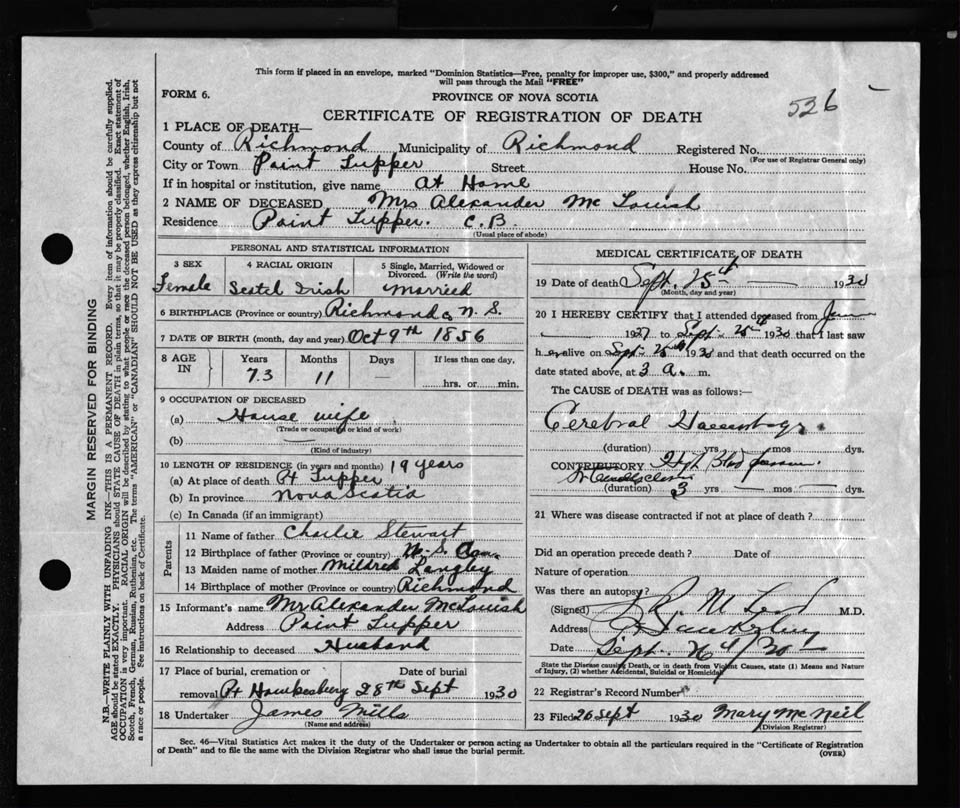 This form if placed in an envelope, marked "Dominion Statistics—Free, penalty for improper use, $300," and properly addressed
will pass through the Mail "FREE"
FORM 6.
PROVINCE OF NOVA SCOTIA
526
CERTIFICATE OF REGISTRATION OF DEATH
1 PLACE OF DEATH—
County of Richmond Municipality of Richmond Registered No.
(For use of Registrar General only)
City or Town Point Tupper Street House No.
If in hospital or institution, give name At Home
2 NAME OF DECEASED Mrs Alexander Mc Louish
Residence Point Tupper. C.B.
(Usual place of abode)
PERSONAL AND STATISTICAL INFORMATION
3 SEX
Female
4 RACIAL ORIGIN
Scotch Irish
5 Single, Married, Widowed or
Divorced. (Write the word)
Married
6 BIRTHPLACE (Province or country) Richmond Co N. S.
7 DATE OF BIRTH (month, day and year) Oct 9th 1856
8 AGE IN
Years Months Days If less than one day,
73 11 — hrs. or min.
9 OCCUPATION OF DECEASED
(a) House wife
(Trade or occupation or kind of work)
(b) —
(Kind of industry)
10 LENGTH OF RESIDENCE (in years and months) 19 years
(a) At place of death Pt Tupper
(b) In province Nova Scotia
(c) In Canada (if an immigrant)
Parents
11 Name of father Charlie Stewart
12 Birthplace of father (Province or country)
13 Maiden name of mother Mildred Langley
14 Birthplace of mother (Province or country) Richmond
15 Informant's name Mr Alexander McLouish
Address Point Tupper
16 Relationship to deceased Husband
17 Place of burial, cremation or Date of burial
removal Pt Hawkesbury 28th Sept 1930
18 Undertaker James Mills
(Name and address)
MEDICAL CERTIFICATE OF DEATH
19 Date of death Sept. 25th — 1930
(Month, day and year)
20 I HEREBY CERTIFY that I attended deceased from June
1927 to Sept. 25th 1930 that I last saw
her alive on Sept. 25th 1930 and that death occurred on the
date stated above, at 3 a. m.
The CAUSE OF DEATH was as follows:
Cerebral Haemorhage
(duration) yrs — mos dys.
CONTRIBUTORY High Blood pressure
(duration) 3 yrs — mos — dys.
21 Where was disease contracted if not at place of death?
Did an operation precede death? Date of
Nature of operation
Was there an autopsy?
(Signed) M.D.
Address
Date Sept. 26th/30
State the Disease causing Death, or in death from Violent Causes, state (1) Means and Nature
of Injury, (2) whether Accidental, Suicidal or Homicidal
22 Registrar's Record Number
23 Filed 26 Sept 1930 Mary McNeil
(Division Registrar)
Sec. 46—Vital Statistics Act makes it the duty of the Undertaker or person acting as Undertaker to obtain all the particulars required in the "Certificate of Registration
of Death" and to file the same with the Division Registrar who shall issue the burial permit.
(OVER)
MARGIN RESERVED FOR BINDING
N.B.—WRITE PLAINLY WITH UNFADING INK—THIS IS A PERMANENT RECORD. Every item of information should be carefully supplied.
AGE should be stated EXACTLY. PHYSICIANS should STATE CAUSE OF DEATH in plain terms, so that it may be properly classified. Exact statement of
OCCUPATION is very important. RACIAL ORIGIN will be described by stating to what people or race the deceased person belonged, whether English, Irish,
Scotch, French, German, Russian, Ruthenian, etc. The terms "AMERICAN" or "CANADIAN" SHOULD NOT BE USED as they express citizenship but not
a race or people. See instructions on back of Certificate.